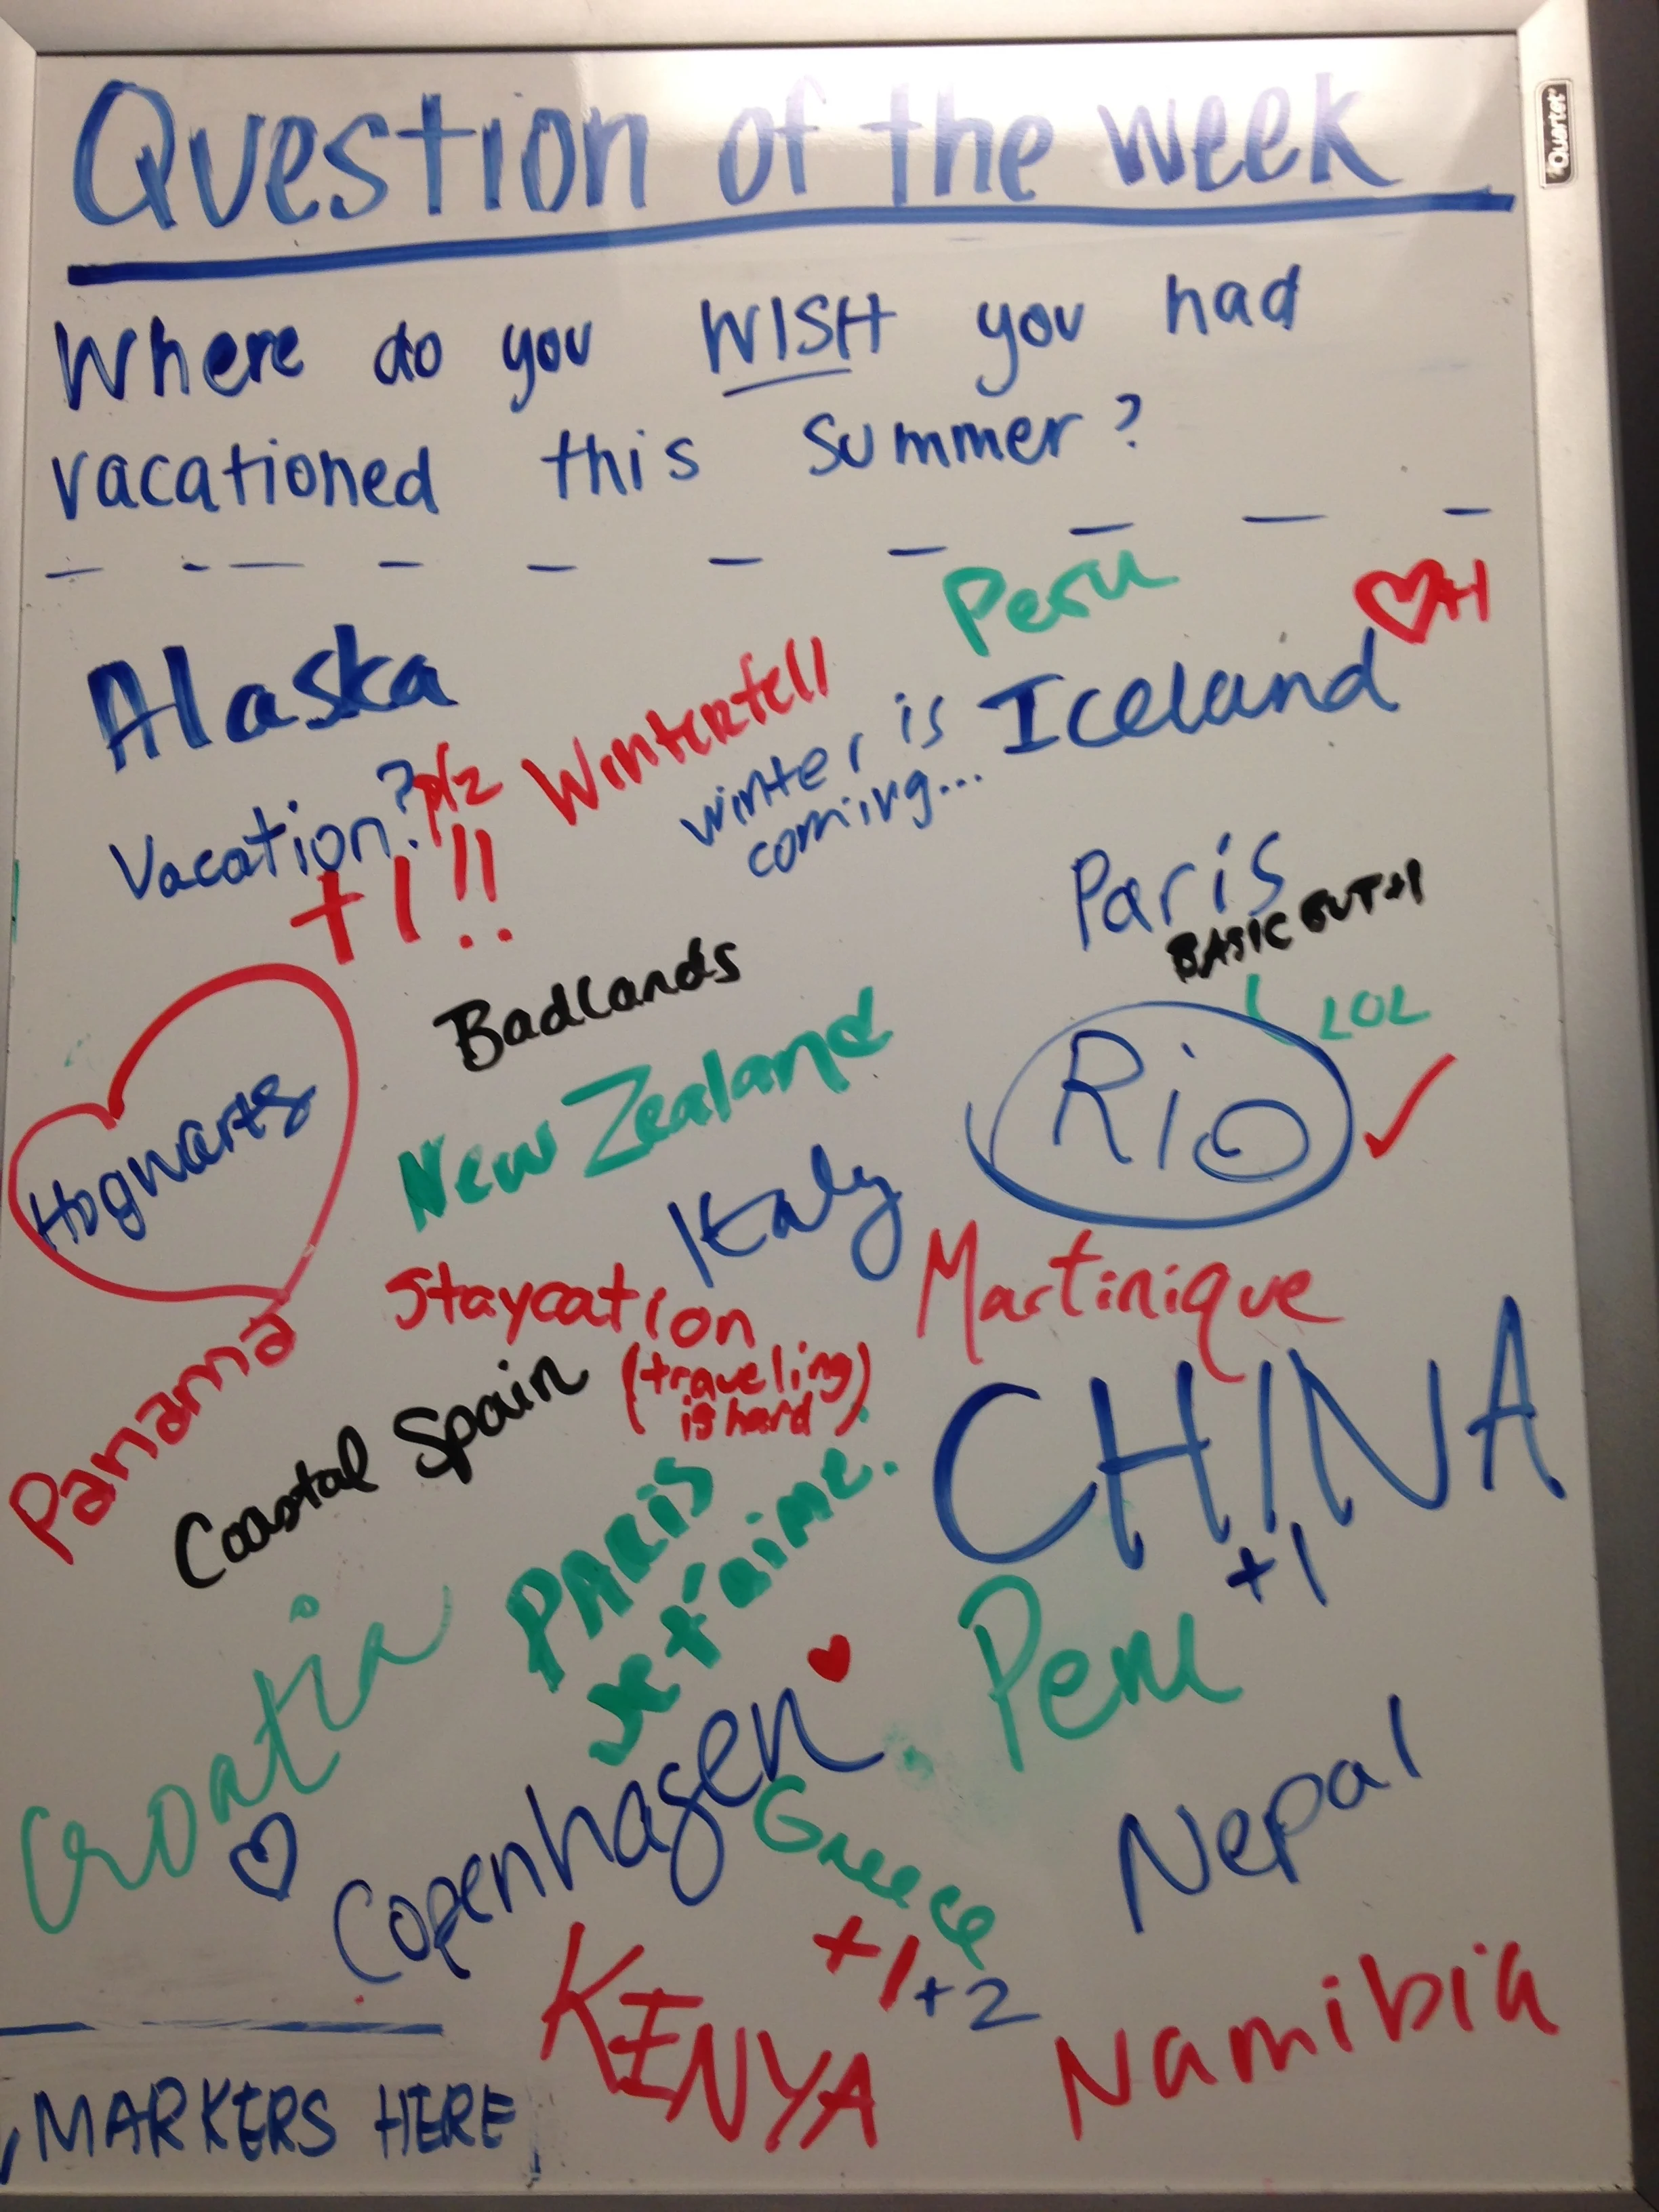 Question of the week
Quartet
Where do you WISH you had
vacationed this summer?
Peru
♡+1
Alaska
Winterfell
winter is
coming...
Iceland
Vacation? plz
+1!!
Paris
LOL
Badlands
Hogwarts
New Zealand
Rio
Italy
Staycation
(traveling
is hard)
Martinique
Panama
Coastal Spain
CHINA
+1
PARIS
Je t'aime.
Croatia
Peru
Copenhagen
Greece
+1 +2
Nepal
KENYA
Namibia
MARKERS HERE